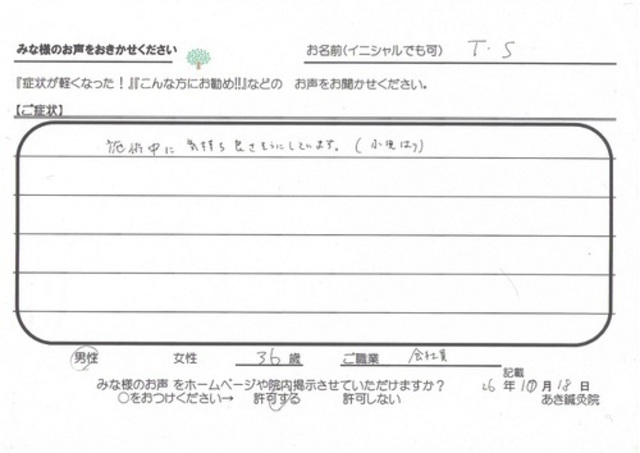 みな様のお声をおきかせください
お名前(イニシャルでも可) T・S
『症状が軽くなった！』『こんな方にお勧め!!』などの お声をお聞かせください。
【ご症状】
施術中に 気持ち良さそうにしています。(小児はり)
男性 女性 36歳 ご職業 会社員
記載
みな様のお声 をホームページや院内掲示させていただけますか？ 26年10月18日
○をおつけください→ 許可する 許可しない あき鍼灸院